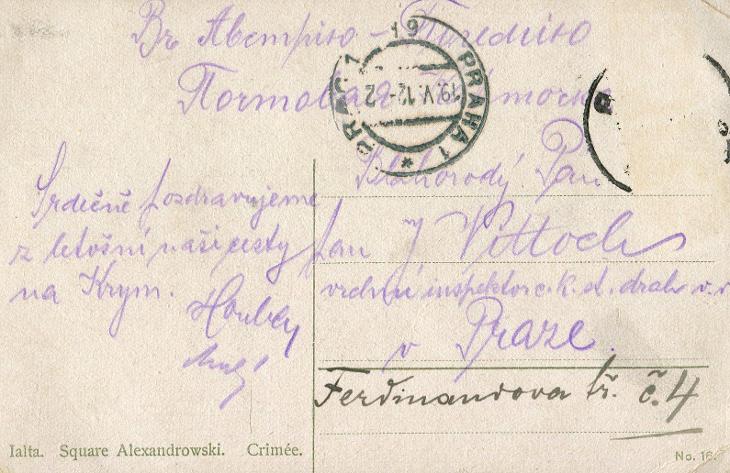 Въ Австрию –
Почтовая
19
PRAHA 1
PRAG 1
19.V.12-2
*
Srdečně pozdravujeme
z letošní naší cesty
na Krym.
Blahorodý Pan
pan J
vrchní inspektor c. k. d. drah v. v.
v Praze.
Ferdinandova tř. č. 4
Ialta. Square Alexandrowski. Crimée.
No. 16.